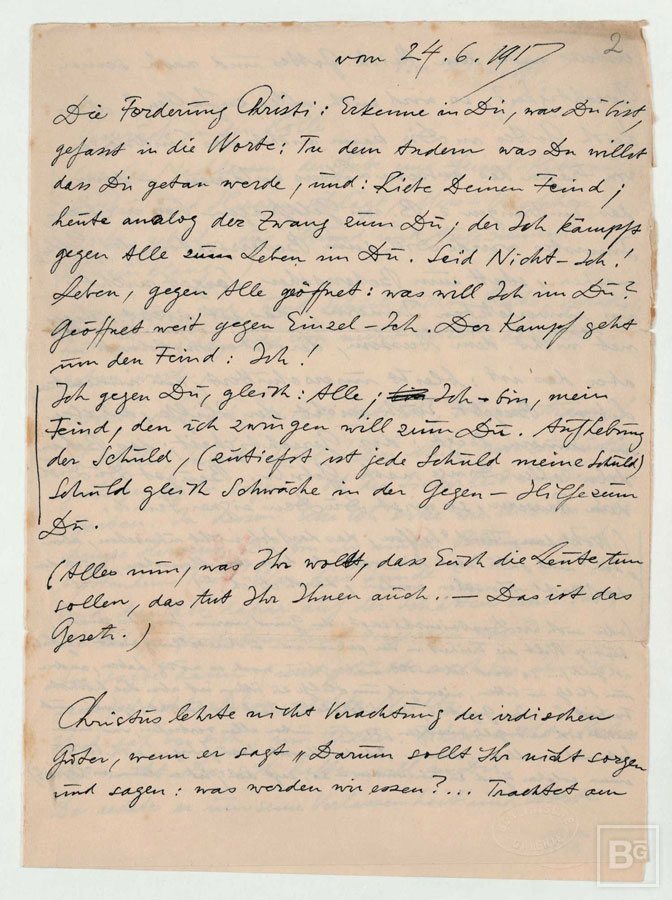 2
vom 24.6.1917
Die Forderung Christi: Erkenne in Du, was Du bist,
gefasst in die Worte: Tu dem Andern was Du willst
dass Dir getan werde, und: Liebe Deinen Feind;
heute analog der Zwang zum Du; der Ich kämpft
gegen Alle zum Leben im Du. Seid Nicht-Ich!
Leben, gegen Alle geöffnet: was will Ich im Du?
Geöffnet weit gegen Einzel-Ich. Der Kampf geht
um den Feind: Ich!
Ich gegen Du, gleich: Alle; bin Ich-bin, mein
Feind, den ich zwingen will zum Du. Aufhebung
der Schuld, (zutiefst ist jede Schuld meine Schuld)
Schuld gleich Schwäche in der Gegen-Hilfe zum
Du.
(Alles nun, was Ihr wollt, dass Euch die Leute tun
sollen, das tut Ihr Ihnen auch. — Das ist das
Gesetz.)
Christus lehrte nicht Verachtung der irdischen
Güter, wenn er sagt „Darum sollt Ihr nicht sorgen
und sagen: was werden wir essen?... Trachtet am
BG